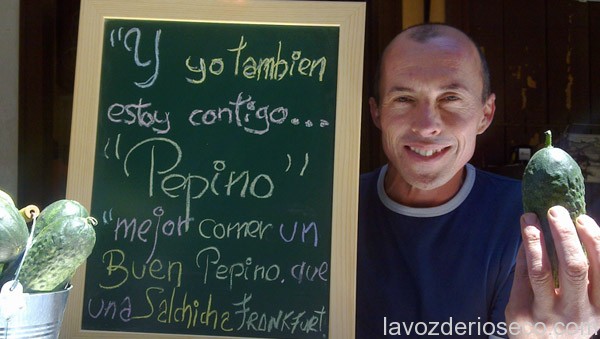 "Y yo tambien
estoy contigo...
"Pepino"
"mejor comer un
Buen Pepino. que
una Salchicha FRANKFURT.
lavozderioseco.com